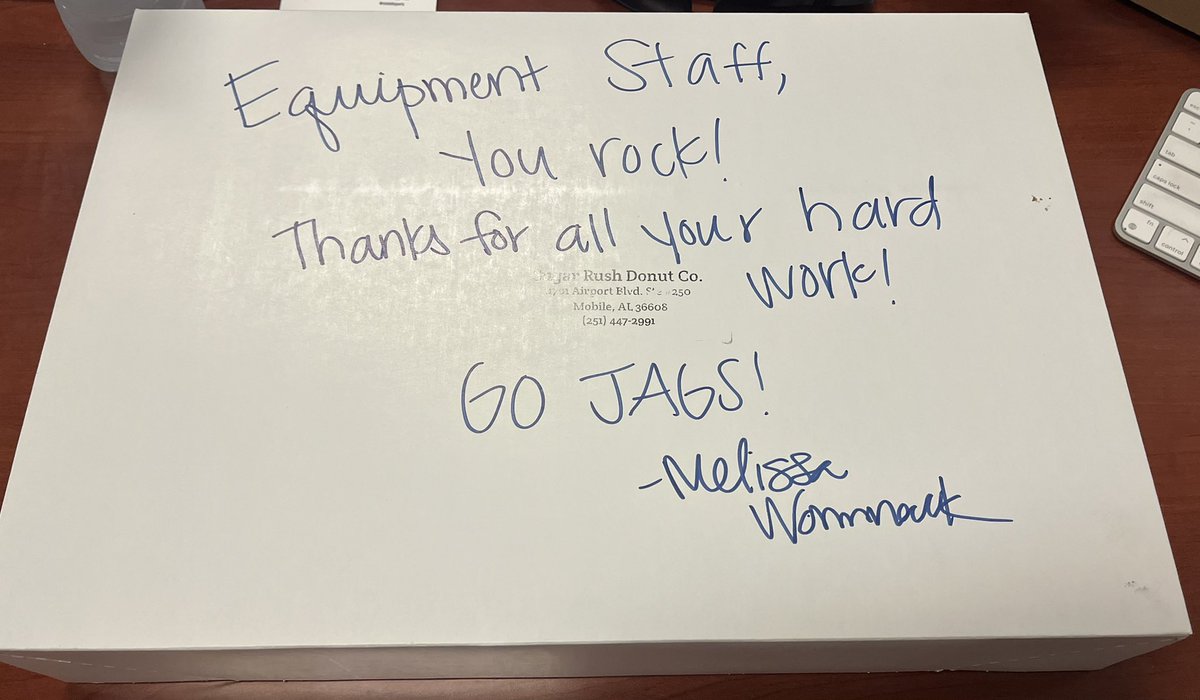 Equipment Staff,
You rock!
Thanks for all your hard
work!
Rush Donut Co.
Airport Blvd. 250
Mobile, AL 36608
(251) 447-2991
GO JAGS!
-Melissa
Wommack
tab
caps lock
shift
fn
control